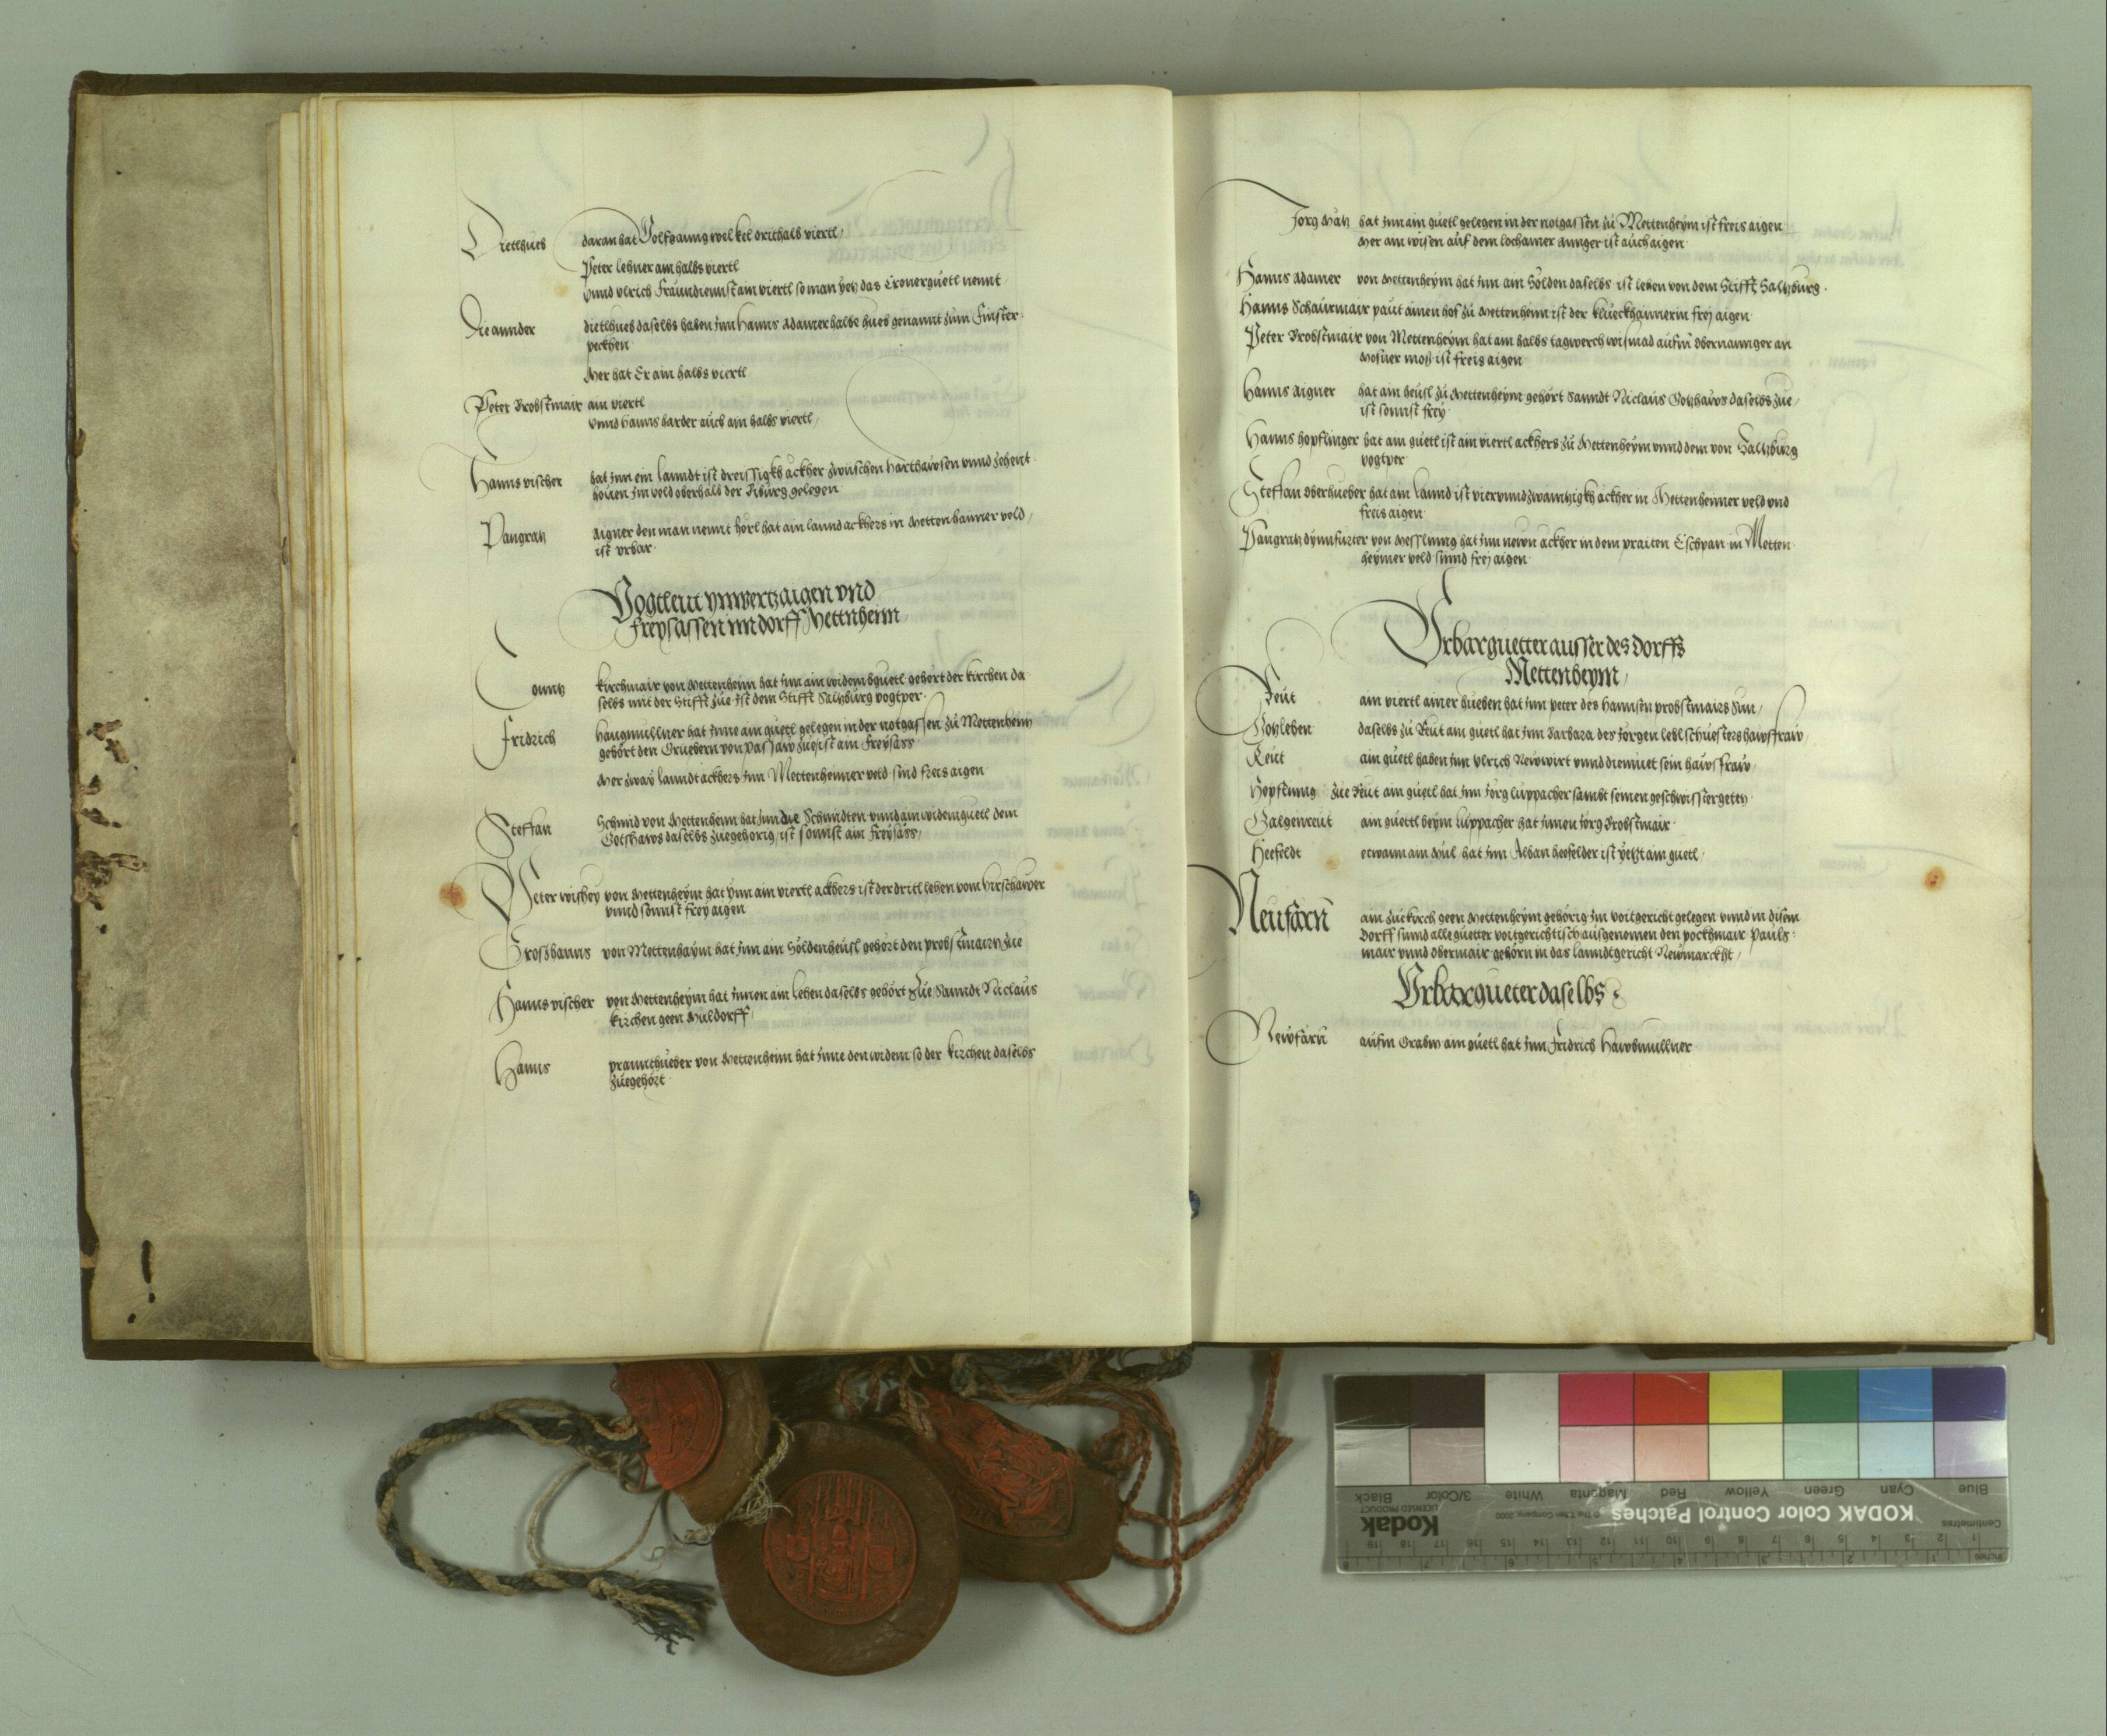 Dietlhueb daran hat Wolfganng welkel drithalb viertl
Peter lehner ain halbs viertl
vnnd vlrich Fraundiennst ain viertl so man yetz das Cronerguetl nennt
Die annder dietlhueb daselbs haben jnn Hanns Adamer halbe hueb genannt zum Finster
peckhen
Mer hat Er ain halbs viertl
Peter Brobstmair ain viertl
vnnd Hanns harder auch ain halbs viertl
Hanns vischer hat jnn ein lanndt ist dreissigkh ackher zwischen harthawsen vnnd zehent
höuen im veld oberhalb der gelegen
Pangratz aigner den man nennt hörl hat ain lannd ackhers in Mettenhaimer veld
ist vrbar
Vogtleut ynwertzaigen vnd
Freysassen im dorff Mettnheim
Conntz kirchmair von Mettenheim hat jnn ain widembguetl gehört der kirchen da
selbs mit der Stifft zue ist dem Stifft Saltzburg vogtper
Fridrich haugmullner hat jnne ain guetl gelegen in der notgassen zu Mettenheim
gehört den Gruebern von passaw zue ist ain freysäss
Mer zway lanndt ackhers jnn Mettenheimer veld sind freis aigen
Steffan Schmid von Mettenheim hat jnn die Schmidten vnnd ain widemguetl dem
Gotshaws daselbs zuegehörig ist sonnst ain freysäss
Peter wishey von Mettenheym hat ynn ain viertl ackhers ist der dritl lehen vom hirschawer
vnnd sonnst frey aigen
Großhanns von Mettenhaym hat jnn ain Söldenheusl gehört den probstmairn zue
Hanns vischer von Mettenheym hat jnnen ain lehen daselbs gehört zue Sanndt Niclaus
kirchen geen Muldorff
Hanns prannthueber von Mettenheim hat jnne den widem so der kirchen daselbs
zuegehört
Jorg hat jnn ain guetl gelegen in der notgassen zu Mettenheym ist freis aigen
Mer ain wisen auf dem lochamer annger ist auch aigen
Hanns Adamer von Mettenheym hat jnn ain Sölden daselbs ist lehen von dem Stifft Saltzburg
Hanns Schaurmair paut ainen hof zu Mettenheim ist der kluegkhaimerin frey aigen
Peter Brobstmair von Mettenheym hat ain halbs tagwerch wismad aufm obernannger an
Mosner mosz ist freis aigen
Hanns aigner hat ain heusl zu Mettenheym gehört Sanndt Niclaus Gotzhaws daselbs zue
ist sonnst frey
Hanns hopflinger hat ain guetl ist ain viertl ackhers zu Mettenheym vnnd dem von Saltzburg
vogtper
Steffan Oberhueber hat ain lannd ist viervnndzwaintzigkh ackher in Mettenheimer veld vnd
freis aigen
Pangratz dynnfurter von Messlnng hat jnn newn ackher in dem praiten Eschpan in Metten
heymer veld sinnd frey aigen
Vrbarguetter ausser des dorffs
Mettenheym
Reut ain viertl ainer hueben hat jnn peter des hannsen probstmairs Sun
Gotzlehen daselbs zu Reut ain guetl hat jnn Barbara des Jorgen lebl schuesters hawsfraw
Reut ain guetl haben jnn vlrich Newwirt vnnd diemuet sein hawsfraw
Hopfting zue Reut ain guetl hat jnn Jorg luppacher sambt seinen geschwistergeten
Galgenreut ain guettl beym luppacher hat jnnen Jorg Brobstmair
Heefeldt etwann ain Mul hat jnn Alban heefelder ist yetzt ain guetl
Neufarn ain zuekirch geen Mettenheym gehörig jm voitgericht gelegen vnnd in disem
Dorff sinnd alle guetter voitgerichtisch ausgenomen den pockhmair Pauls
mair vnnd obermair gehörn in das lanndtgericht Newmarckht
Vrbarguetter daselbs
Newfarn aufm Grabm ain guetl hat jnn Fridrich Hawbmullner
Blue
Cyan
Green
Yellow
Red
Magenta
White
3/Color
Black
KODAK Color Control Patches
Kodak
LICENSED PRODUCT
Centimetres
Inches